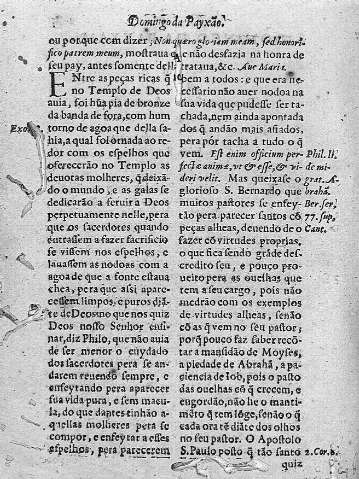 Domingo da Payxão.
ou porque com dizer, Non quæro gloriam meam, sed honori-
fico patrem meum, mostraua q̃
seu pay, antes somente del
ENtre as peças ricas q̃
no Templo de Deos
auia, foi hũa pia de bronze
da banda de fora, com hum
Exo
torno de agoa que della sa-
hia, a qual foi ornada ao re-
dor com os espelhos que
offerecerão no Templo as
deuotas molheres, q̃ deixã-
do o mundo, e as galas se
dedicarão a seruir a Deos
perpetuamente nelle, pera
que os sacerdotes quando
ẽntrassem a fazer sacrificio
se vissem nos espelhos, e
lauassem as nodoas com a
agoa de que a fonte estaua
chea, pera que assi apare-
cessem limpos, e puros diã-
te de Deos no que nos quiz
Deos nosso Senhor ensi-
nar, diz Philo, que não auia
de ser menor o cuydado
dos sacerdotes pera se an-
darem reuendo sempre, e
enfeytando pera aparecer
sua vida pura, e sem macu-
la, do que dantes tinhão a-
quellas molheres pera se
compor, e enfeytar a esses
espelhos, pera parecerem
e não desfazia na honra de
trataua, &c. Aue Maria.
bem a todos: e que era ne-
cessario não auer nodoa na
sua vida que pudesse ser ta-
chada, nem ainda apontada
dos q̃ andão mais afiados,
pera pór tacha a tudo o q̃
vem. Est enim officium per-
Phil. li.
fectæ animæ, vt & esse, & vide-
de mi-
deri velit. Mas queixase o
grat. A
glorioso S. Bernardo que
brahã.
muitos pastores se enfey-
Ber. ser.
tão pera parecer santos cõ
77. sup.
peças alheas, deuendo de o
Cant.
fazer cõ virtudes proprias,
o que fica sendo grãde des-
credito seu, e pouco pro-
ueito pera as ouelhas que
tem a seu cargo, pois não
medrão com os exemplos
de virtudes alheas, senão
cõ as q̃ vem no seu pastor;
porq̃ pouco faz saber recõ-
tar a mansidão de Moyses,
a piedade de Abrahã, a pa-
ciencia de Iob, pois o pasto
das ouelhas cõ q̃ crecem, e
engordão, não he o manti-
mẽto q̃ tem lõge, senão o q̃
cada ora tẽ diãte dos olhos
no seu pastor. O Apostolo
S. Paulo posto q̃ tão santo
2. Cor. 6.
quiz